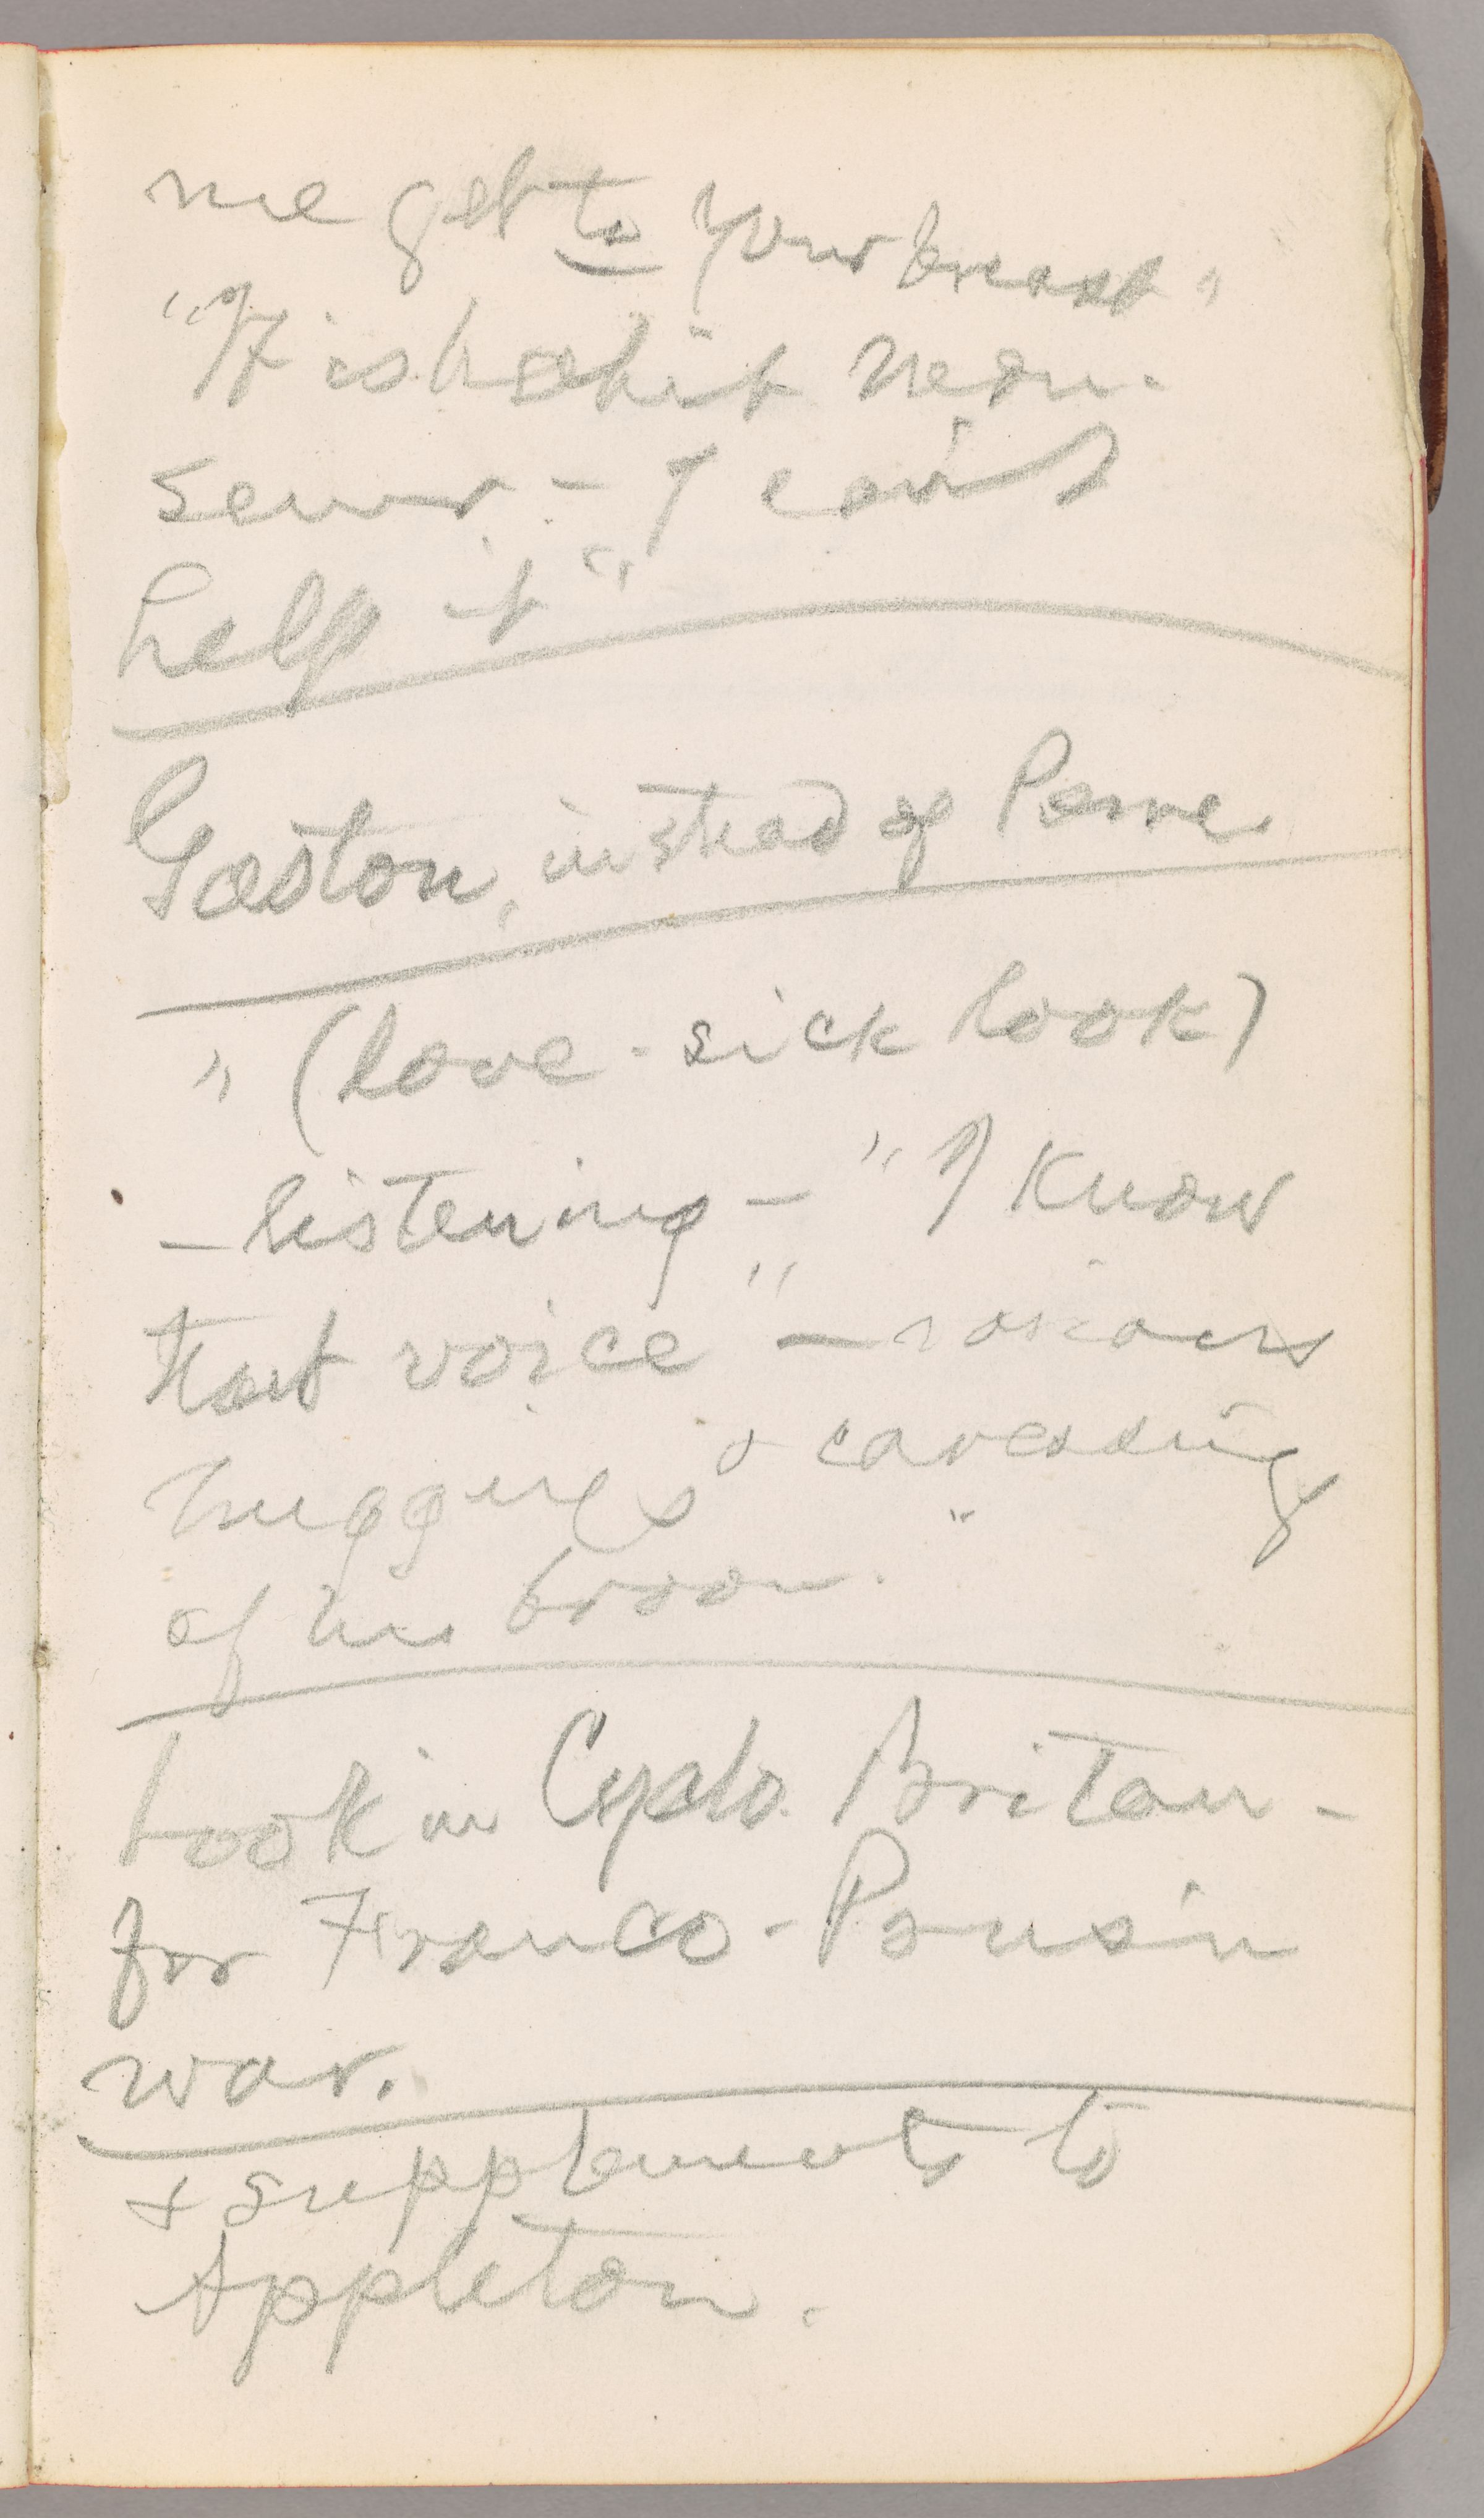 me get to your breast"
"It is habit
- I can't
help it"
Gaston, instead of Pierre
" (love-sick look)
- listening - " I know
that voice" - various
huggings & caressings
of his broom.
Look in Cyclo. Britan-
for Franco-
war.
& supplements to
Appleton.